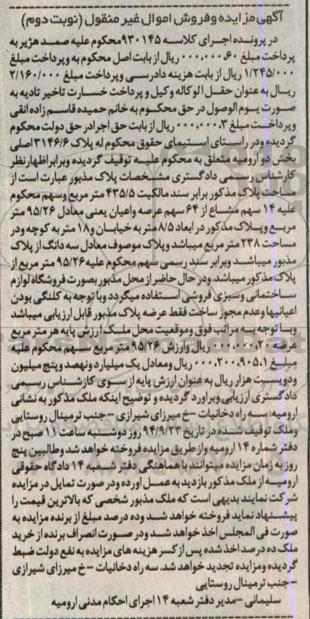 آگهی مزایده وفروش اموال غیر منقول (نوبت دوم)
در پرونده اجرای کلاسه ۹۳۰۱۴۵محکوم علیه صمد هژیر به
پرداخت مبلغ ۶۰،۰۰۰،۰۰۰ ریال از بابت اصل محکوم به وپرداخت مبلغ
۱/۲۴۵/۰۰۰ ریال از بابت هزینه دادرسی وپرداخت مبلغ ۲/۱۶۰/۰۰۰
ریال به عنوان حق الوکاله وکیل و پرداخت خسارت تاخیر تادیه به
صورت یوم الوصول در حق محکوم به خانم حمیده قاسم زاده انقی
وپرداخت مبلغ ۳،۰۰۰،۰۰۰ ریال از بابت حق اجرا در حق دولت محکوم
گردیده ودر راستای استیفای حقوق محکوم له پلاک ۳۱۴۶/۶ اصلی
بخش دو ارومیه متعلق به محکوم علیه توقیف گردیده وبرابر اظهار نظر
کارشناس رسمی دادگستری مشخصات پلاک مذبور عبارت است از
مساحت پلاک مذکور برابر سند مالکیت ۴۳۵/۵ متر مربع وسهم محکوم
علیه ۱۴ سهم مشاع از ۶۴ سهم عرصه واعیان یعنی معادل ۹۵/۲۶ متر
مربع وپلاک مذکور در ابعاد ۸/۵متر به خیابان و۱۸ متر به کوچه ودر
مساحت ۲۳۸ متر مربع میباشد وپلاک موصوف معادل سه دانگ از پلاک
مذبور میباشد وبرابر سند رسمی سهم محکوم علیه ۹۵/۲۶ متر مربع از
پلاک مذکور میباشد.ودر حال حاضر از محل مذبور بصورت فروشگاه لوازم
ساختمانی وسبزی فروشی استفاده میگردد وبا توجه به کلنگی بودن
اعیانیها وعدم مجوز ساخت فقط عرصه پلاک مذبور قابل ارزیابی میباشد
وبا توجه به مراتب فوق وموقعیت محل ملک ارزش پایه هر متر مربع
عرصه ۲۰،۰۰۰،۰۰۰ ریال وارزش ۹۵/۲۶ متر مربع سهم محکوم علیه
مبلغ ۱،۹۰۵،۲۰۰،۰۰۰ ریال ومعادل یک میلیارد ونهصد وپنج میلیون
ودویست هزار ریال به عنوان ارزش پایه از سوی کارشناس رسمی
دادگستری ارزیابی وبرآورد گردیده و توضیح اینکه ملک مذکور به نشانی
ارومیه: سه راه دخانیات - خ میرزای شیرازی - جنب ترمینال روستایی
وملک توقیف شده در تاریخ ۹۴/۹/۲۳ روز دوشنبه ساعت ۱۱ صبح در
دفتر شماره ۱۴ ارومیه واز طریق مزایده فروخته خواهد شد وطالبین پنج
روز به زمان مزایده میتوانند با هماهنگی دفتر شعبه ۱۴ دادگاه حقوقی
ارومیه از ملک مذکور بازدید به عمل آورده ودر صورت تمایل در مزایده
شرکت نمایند بدیهی است که ملک مذبور شخصی که بالاترین قیمت را
پیشنهاد نماید فروخته خواهد شد وده درصد مبلغ از برنده مزایده به
صورت فی المجلس اخذ خواهد شد ودر صورت انصراف برنده از خرید
ملک ده درصد اخذ شده پس از کسر هزینه های مزایده به نفع دولت ضبط
گردیده ومزایده تجدید خواهد شد. سه راه دخانیات - خ میرزای شیرازی
- جنب ترمینال روستایی
سلیمانی - مدیر دفتر شعبه ۱۴ اجرای احکام مدنی ارومیه